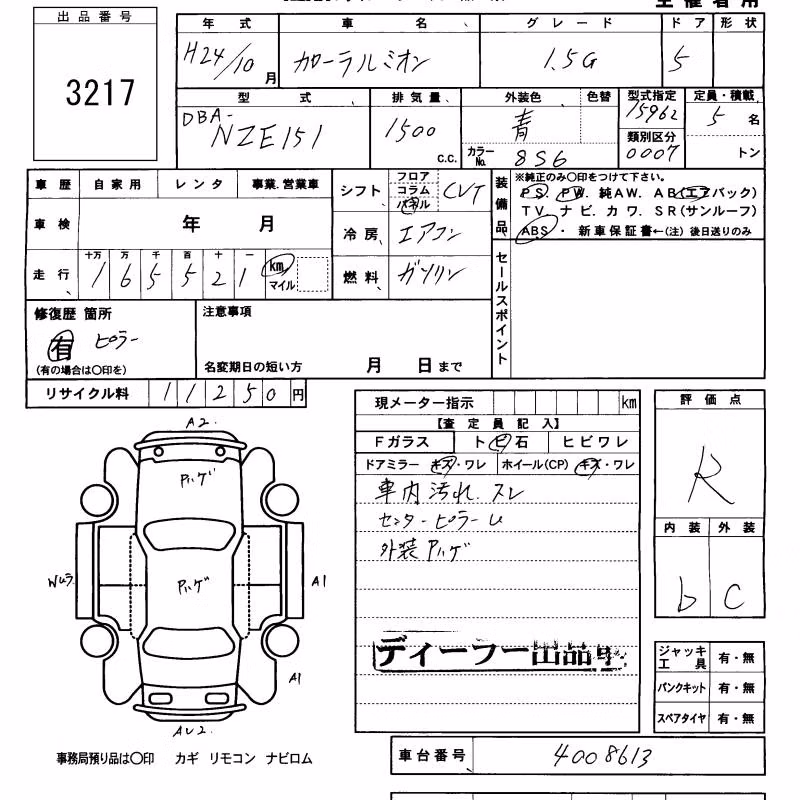 主催者用
出品番号
3217
年式 車名 グレード ドア 形状
H24/10月 カローラルミオン 1.5G 5
型式 排気量 外装色 色替 型式指定 15962 定員・積載
DBA-NZE151 1500 C.C. 青 カラーNo. 8S6 類別区分 0007 5 名 トン
車歴 自家用 レンタ 事業.営業車
車検 年 月
走行 十万 万 千 百 十 一
1 6 5 5 2 1 km マイル
シフト フロア コラム パネル CVT
冷房 エアコン
燃料 ガソリン
装備品 ※純正のみ○印をつけて下さい。
PS. PW. 純AW. AB(エアバック)
TV. ナビ. カワ. SR(サンルーフ)
ABS ・ 新車保証書←(注) 後日送りのみ
セールスポイント
修復歴 箇所
有 ピラー
(有の場合は○印を)
注意事項
名変期日の短い方 月 日まで
リサイクル料 11250円
現メーター指示 km
【査定員記入】
Fガラス トビ石 ヒビワレ
ドアミラー キズ・ワレ ホイール(CP) キズ・ワレ
車内汚れ.スレ
センターピラーU
外装Pハゲ
ディーラー出品車
評価点
R
内装 外装
b C
A2.
Pハゲ
Pハゲ
Wムラ
A1
A1
AU2.
ジャッキ工具 有・無
パンクキット 有・無
スペアタイヤ 有・無
事務局預り品は○印 カギ リモコン ナビロム
車台番号 4008613